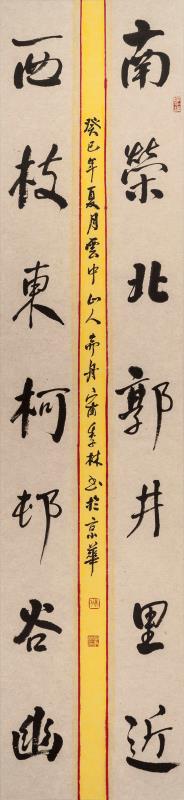 南榮北郭井里近
西枝東柯邨谷幽
癸巳年夏月雲中山人
季林書於京華